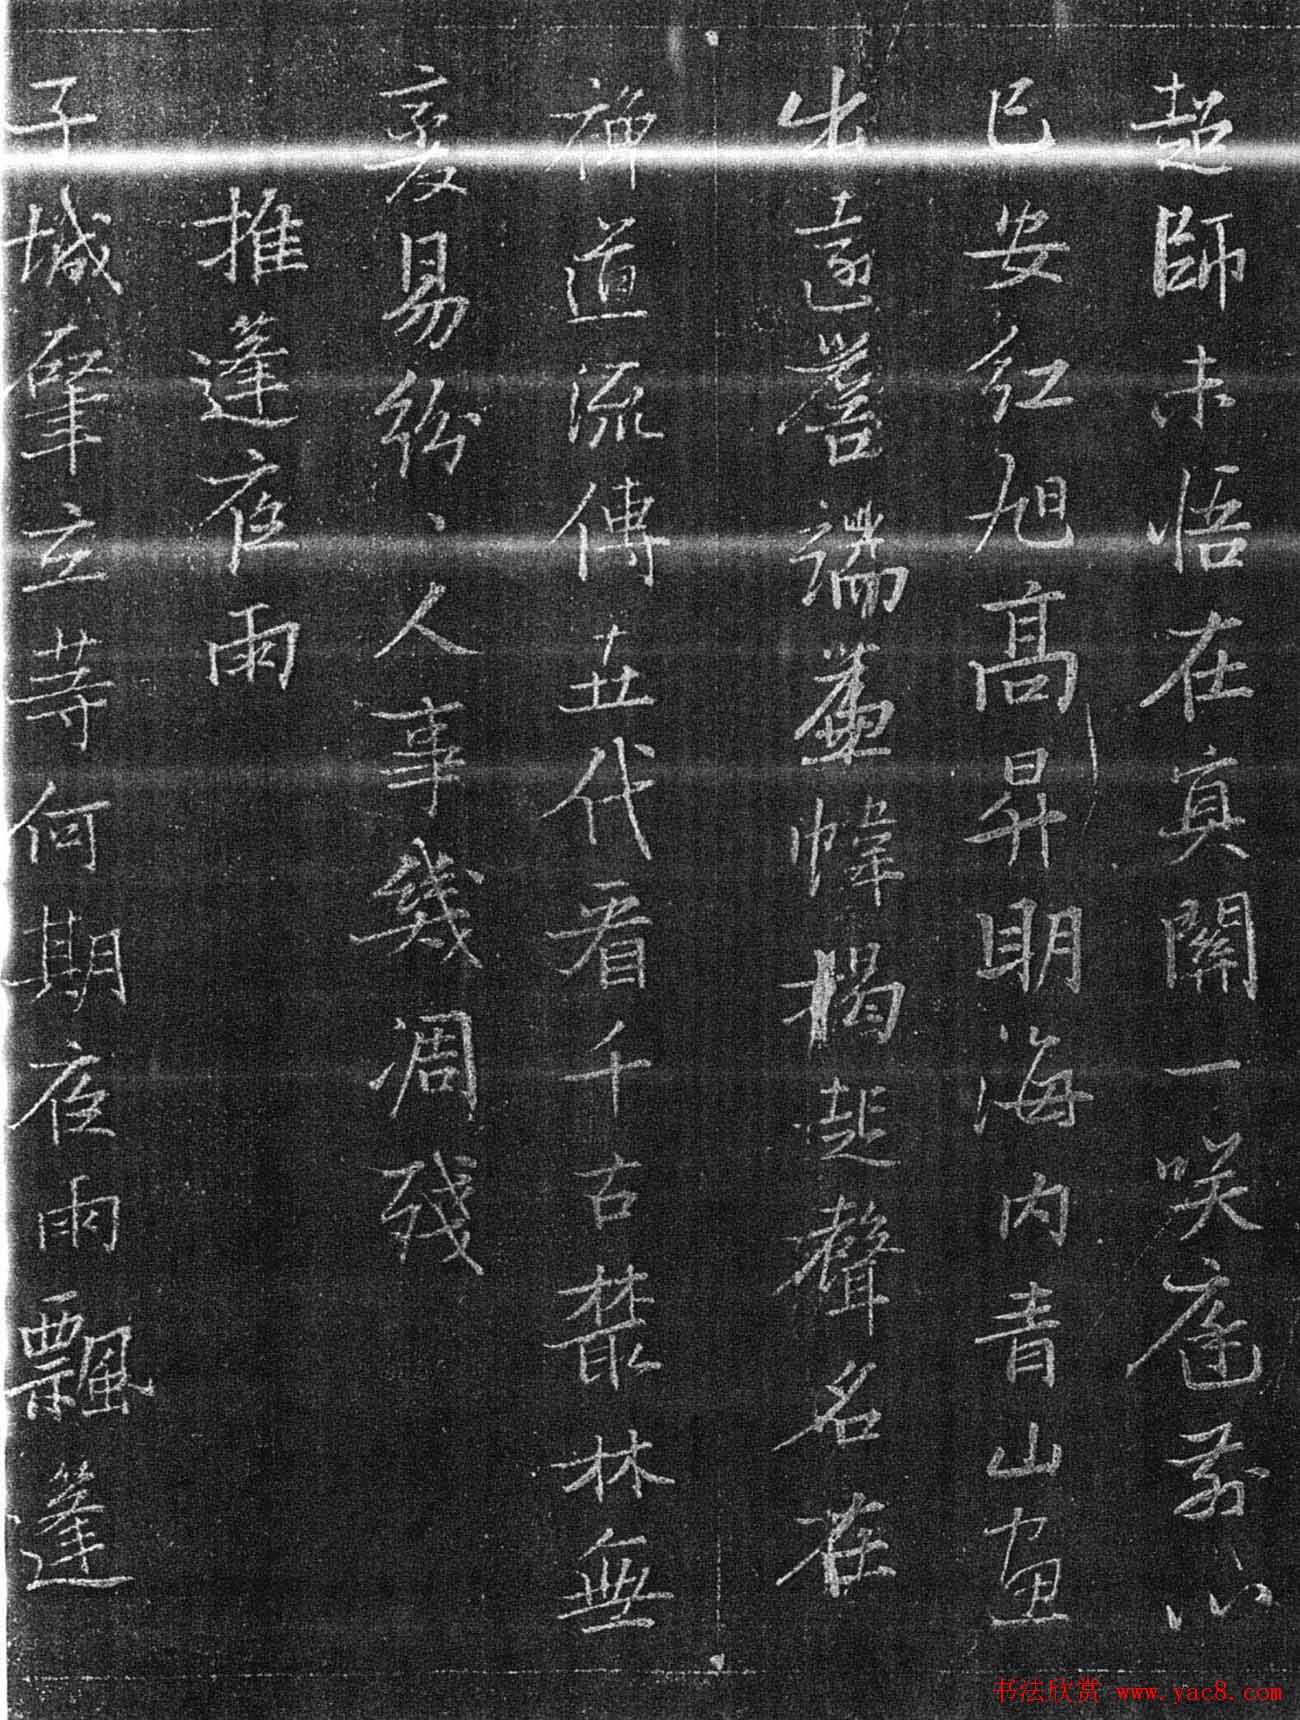 超師未悟在真關一咲庭前心
已安紅旭高昇明海內青山畫
出遶簷端簾幃揭起聲名在
禪道流傳五代看千古叢林無
變易紛〻人事幾凋殘
推蓬夜雨
子城肇立等何期夜雨飄蓬
书法欣赏 www.yac8.com